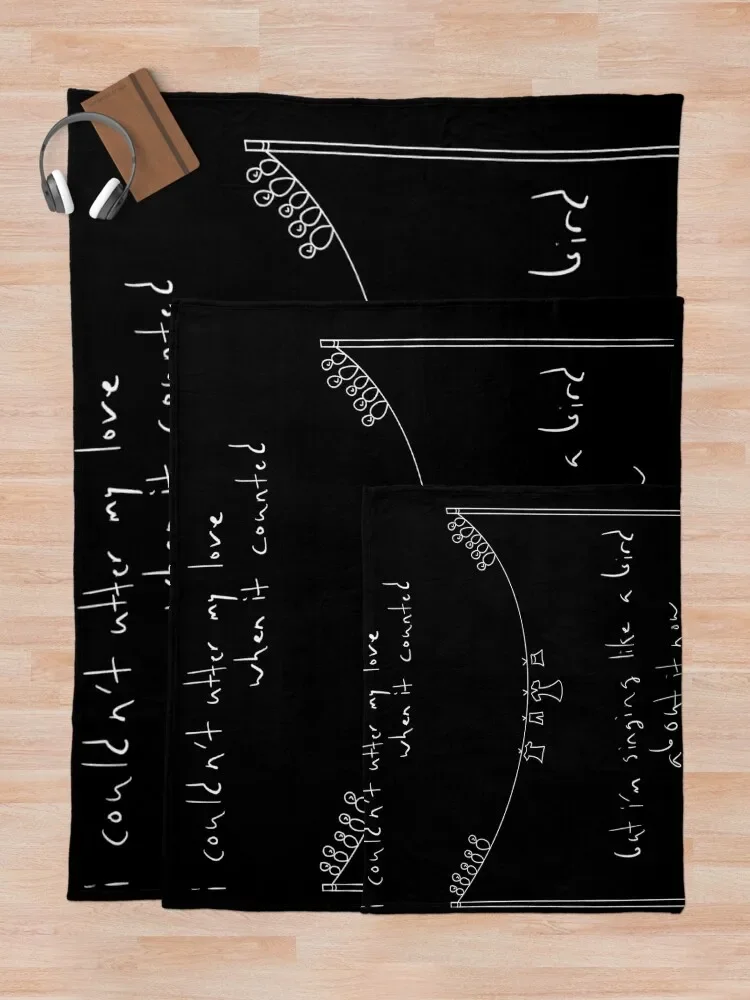 i couldn't utter my love
when it counted
bird
i couldn't utter my love
when it counted
a bird
i couldn't utter my love
when it counted
but i'm singing like a bird
about it now